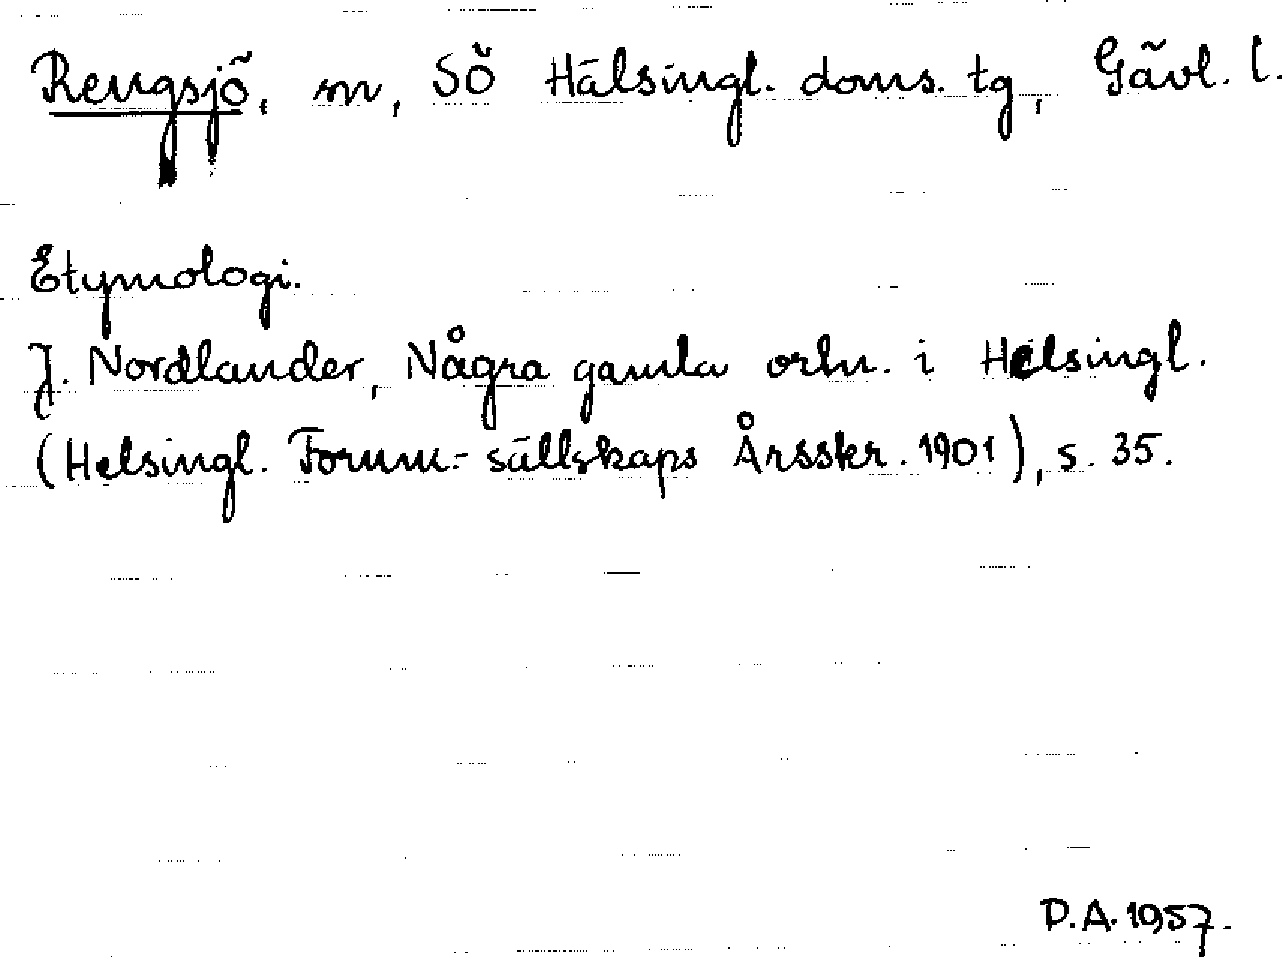 Rengsjö, sn, Sö Hälsingl. doms. tg, Gävl. l.
Etymologi.
J. Nordlander, Några gamla ortn. i Helsingl.
(Helsingl. Fornm.-sällskaps Årsskr. 1901), s. 35.
D.A. 1957.